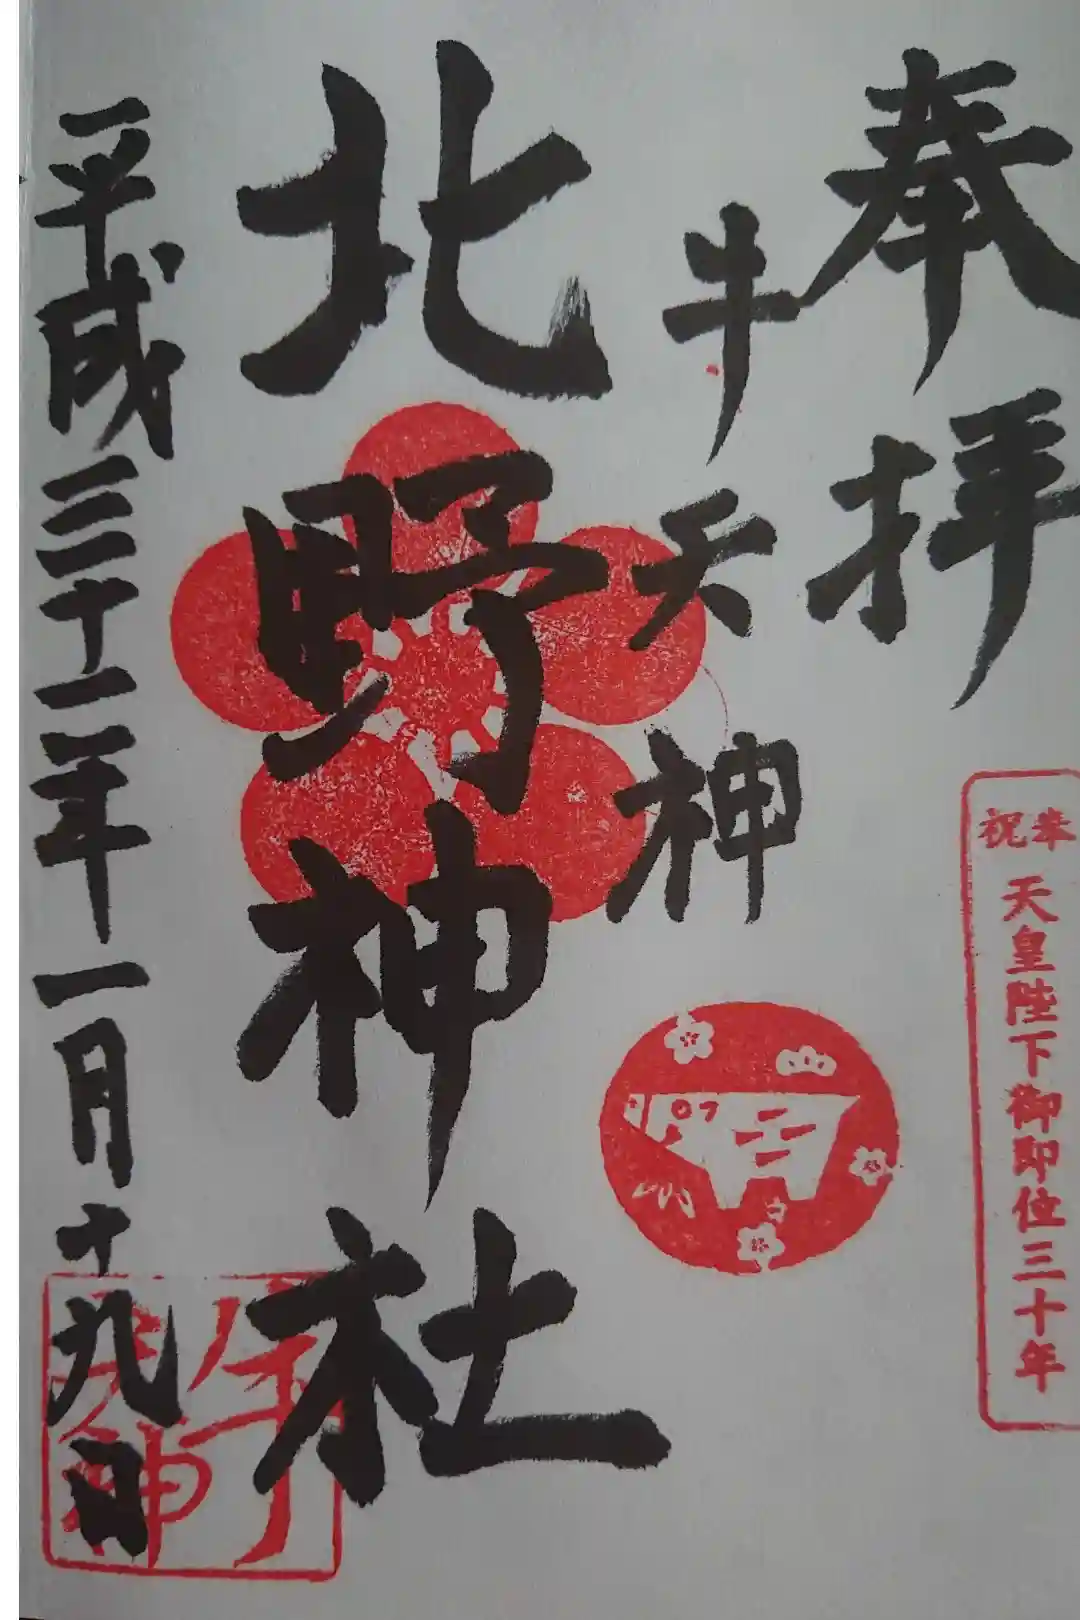 奉拝
奉祝
天皇陛下御即位三十年
牛天神
北野神社
平成三十一年一月十九日
牛
天神